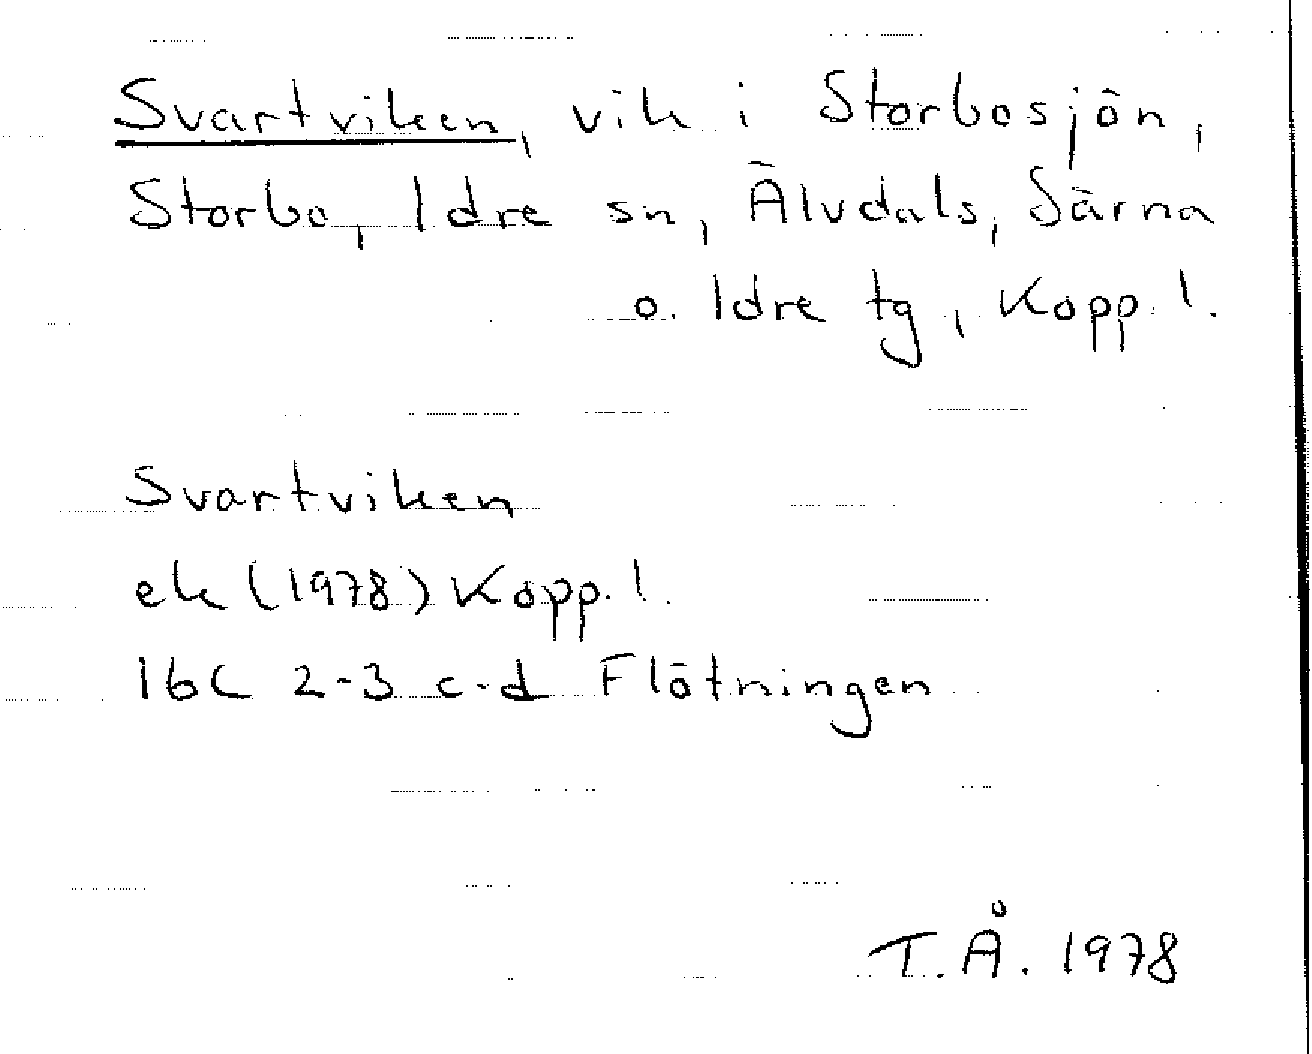 Svartviken, vik i Storbosjön,
Storbo, Idre sn, Älvdals, Särna
o. Idre tg, Kopp. l.
Svartviken
ek (1978) Kopp. l.
16C 2-3 c-d Flötningen
T.Å. 1978